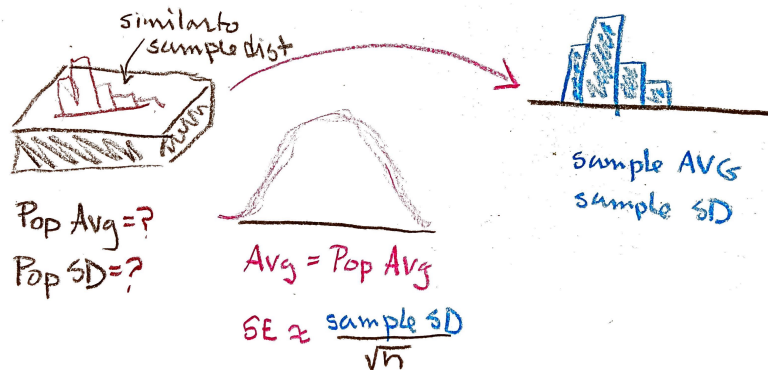 similar to
sample dist
Pop Avg=?
Pop SD=?
Avg = Pop Avg
SE ≈ sample SD
√n
sample AVG
sample SD